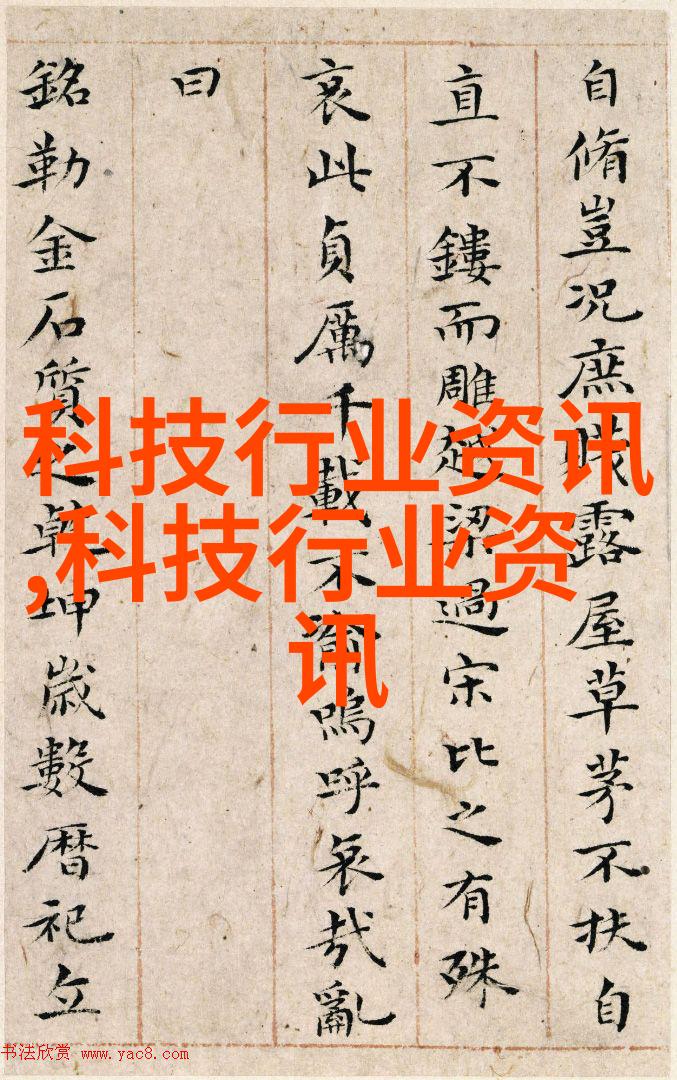 自脩豈況庶賤露屋草茅不扶自
直不鏤而雕越梁過宋比之有殊
哀此貞厲千載不渝嗚呼哀哉亂
曰
銘勒金石質之乾坤歲數曆祀立
科技行业资讯
,科技行业资
讯
书法欣赏 www.yac8.com